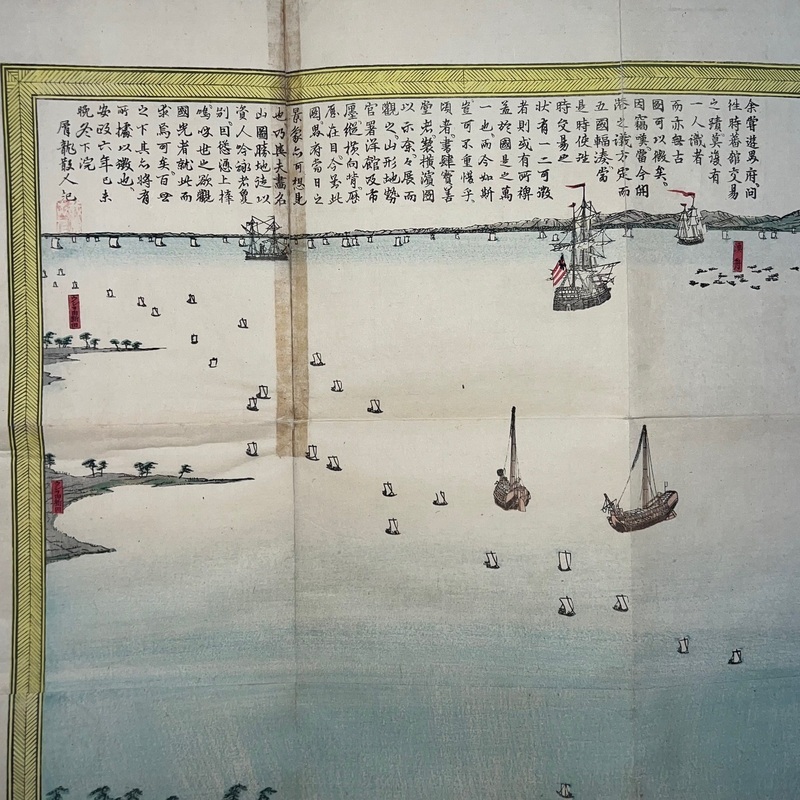 余嘗遊異府、問
往時蕃舘交易
之蹟莫復有
一人識者
而亦無古
圖可以徴矣。
因竊嘆當今開
港之議方定而
五國輻湊當
是時使
時交易之
状有一二可徴
者則或有所裨
益於國是之萬
一也、而今如斯
豈可不重惜乎
頃者、書肆寶善
堂装横濱圖
以示余々展而
觀之山形地勢
官署洋舘及市
廛縱横向背、歴
歴在目、今此
圖異府當日之
景象亦可想見
也乃與夫畫名
山圖勝地徒以
資人吟詠者異
因慫慂上梓
嗚呼世之欲觀
國光者就此而
求焉可矣百世
之下其亦将有
所據以徴也、
安政六年己未
晩冬下浣
龍散人記